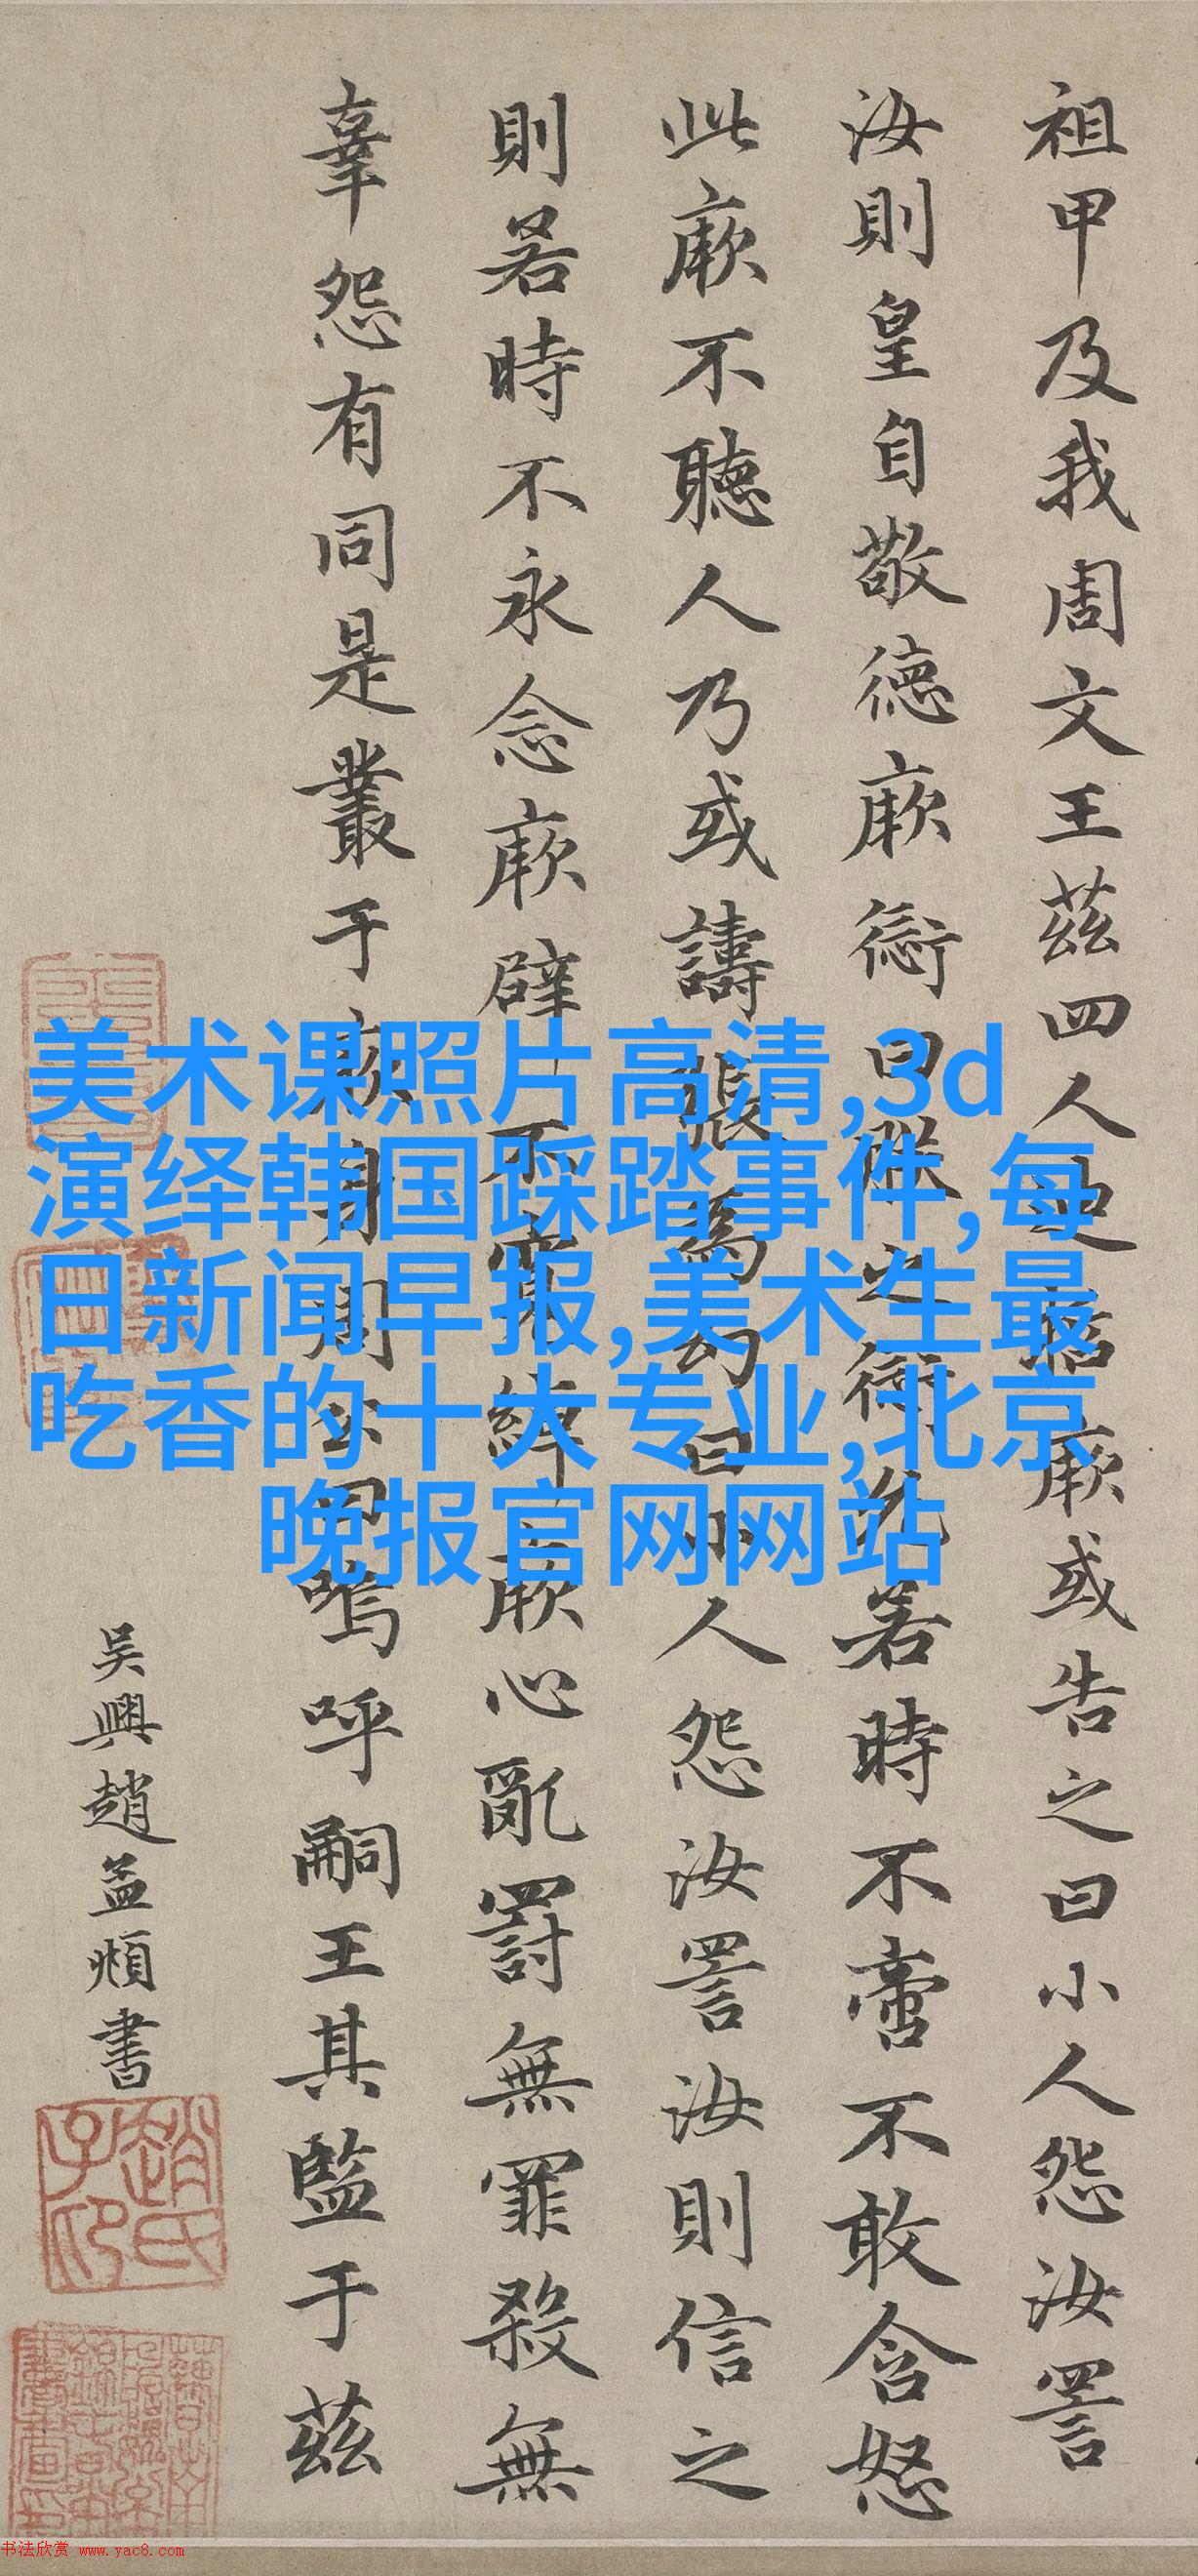 祖甲及我周文王茲四人迪哲厥或告之曰小人怨汝詈
汝則皇自敬德厥愆曰朕之愆允若時不啻不敢含怒
此厥不聽人乃或譸張為幻曰小人怨汝詈汝則信之
則若時不永念厥辟不寬綽厥心亂罰無罪殺無
辜怨有同是叢于厥身周公曰嗚呼嗣王其監于茲
吳興趙孟頫書
趙氏子昂
美术课照片高清,3d
演绎韩国踩踏事件,每
日新闻早报,美术生最
吃香的十大专业,北京
晚报官网网站
书法欣赏 www.yac8.com